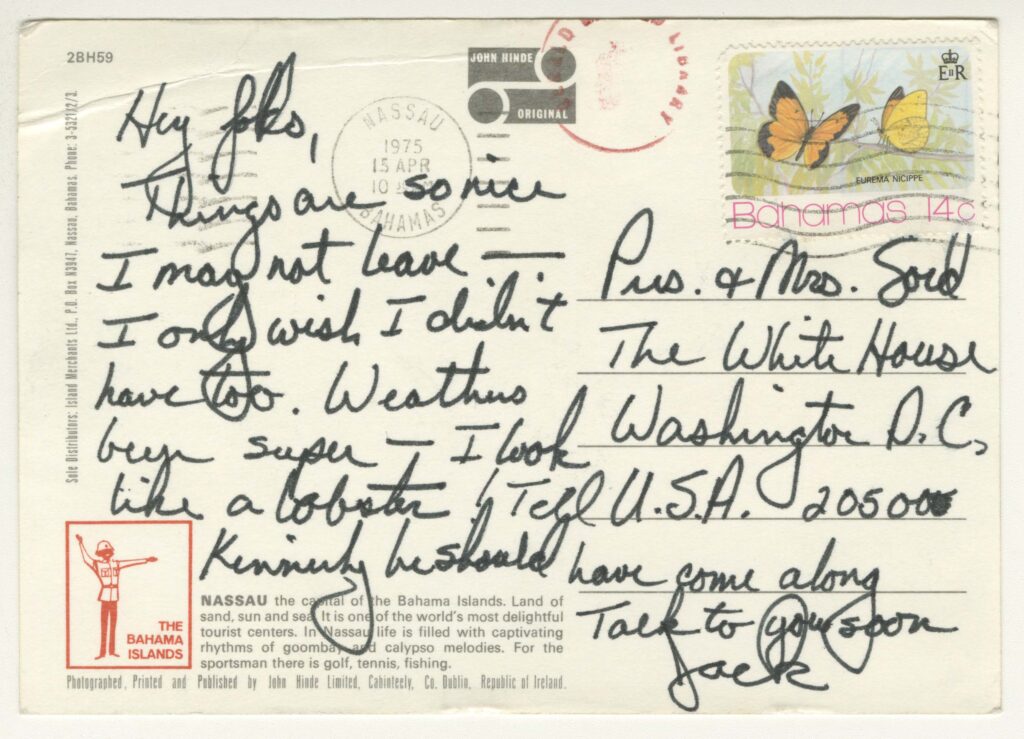 2BH59
JOHN HINDE
ORIGINAL
LIBRARY
NASSAU
1975
15 APR
10
BAHAMAS
E II R
EUREMA NICIPPE
Bahamas 14c
Sole Distributors: Island Merchants Ltd., P.O. Box N3947, Nassau, Bahamas. Phone: 3-5321/2/3.
Hey folks,
Things are so nice
I may not leave —
I only wish I didn't
have too. Weathers
been super – I look
like a lobster! Tell
Kennerly he should have come along
Talk to you soon
Jack
Pres. & Mrs. Ford
The White House
Washington D.C.
U.S.A. 20500
THE
BAHAMA
ISLANDS
NASSAU the capital of the Bahama Islands. Land of
sand, sun and sea. It is one of the world's most delightful
tourist centers. In Nassau life is filled with captivating
rhythms of goombay and calypso melodies. For the
sportsman there is golf, tennis, fishing.
Photographed, Printed and Published by John Hinde Limited, Cabinteely, Co. Dublin, Republic of Ireland.